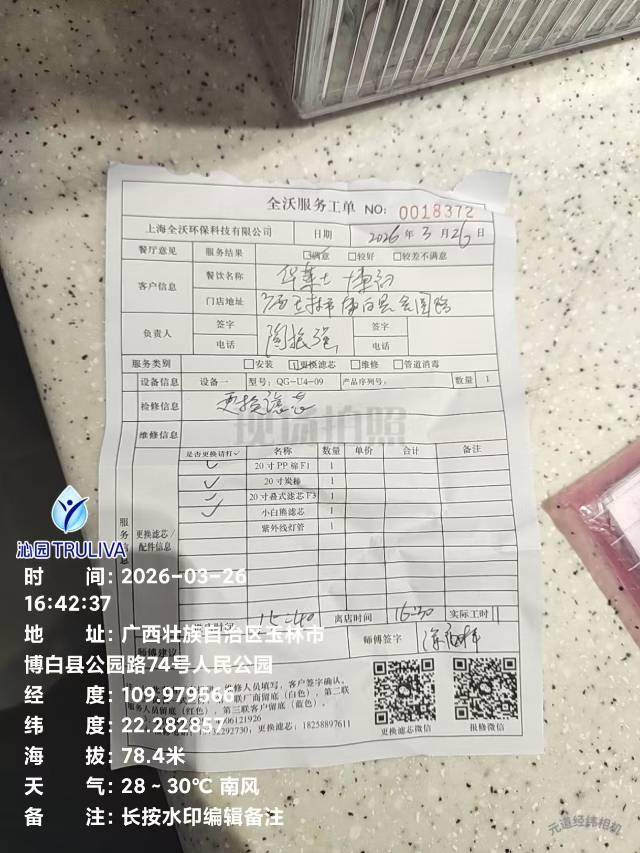 全沃服务工单 NO: 0018372
上海全沃环保科技有限公司 日期 2026年3月26日
餐厅意见 服务结果 满意 较好 较差不满意
客户信息 餐饮名称 华莱士 博白
门店地址 广西玉林市博白县公园路
负责人 签字 签字
电话 电话
服务类别 安装 更换滤芯 维修 管道消毒
设备信息 设备一 型号: QG-U4-09 产品序列号: 数量 1
检修信息 更换滤芯
现场拍照
维修信息
服务信息 更换滤芯/配件信息
是否更换请打✓ 名称 数量 单价 合计 备注
✓ 20寸PP棉F1 1
✓ 20寸炭棒 1
✓ 20寸叠式滤芯F3 1
✓ 小白熊滤芯 1
紫外线灯管 1
15:40 离店时间 16:30 实际工时
师傅建议 师傅签字
维修人员填写，客户签字确认。
联厂商留底（白色），第二联
服务人员留底（红色），第三联客户留底（蓝色）。
06121926
292730; 更换滤芯: 18258897611
更换滤芯微信 报修微信
沁园TRULIVA
时 间: 2026-03-26
16:42:37
地 址: 广西壮族自治区玉林市
博白县公园路74号人民公园
经 度: 109.979566
纬 度: 22.282857
海 拔: 78.4米
天 气: 28~30℃ 南风
备 注: 长按水印编辑备注
元道经纬相机